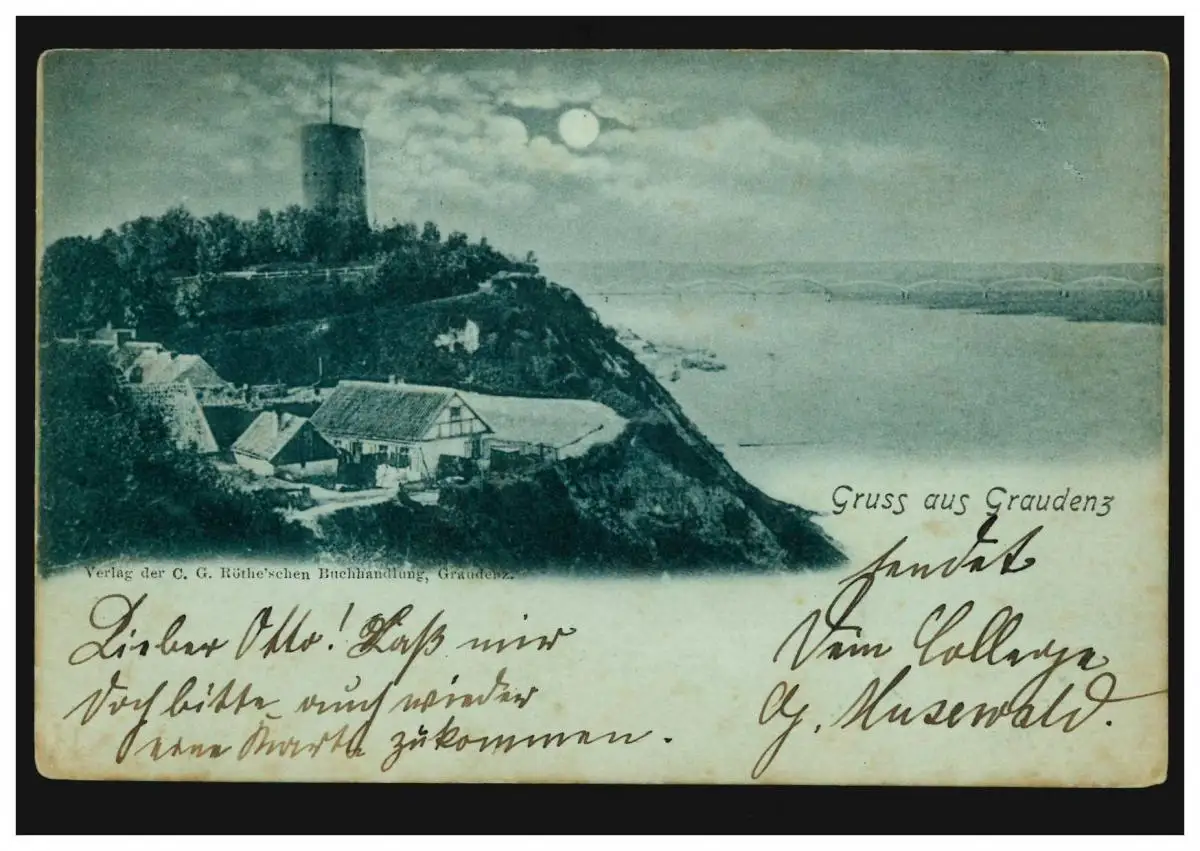 Gruss aus Graudenz
sendet
Dein College
G. Musewald.
Verlag der C. G. Röthe'schen Buchhandlung, Graudenz.
Lieber Otto! Laß mir
doch bitte auch wieder
eine Karte zukommen.